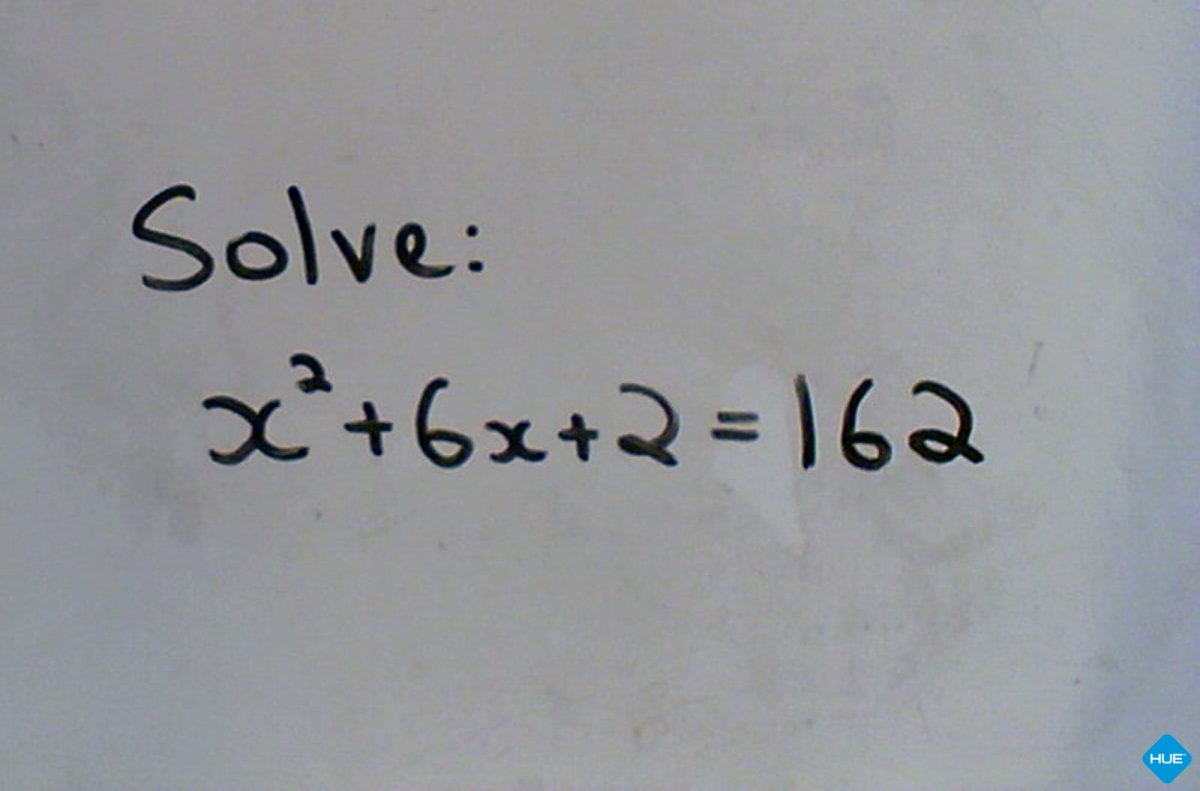 Solve:
x² + 6x + 2 = 162
HUE